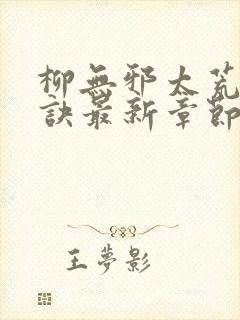 柳無邪太荒
訣最新章節
王夢影